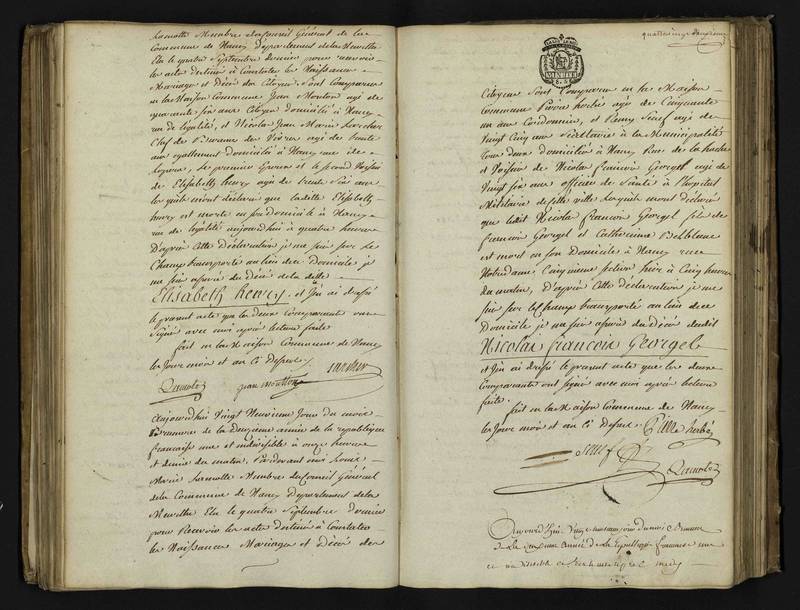 Lamotte Membre du Conseil Général de la
Commune de Nancy Département de la Meurthe
Elu le quatre Septembre dernier pour recevoir
les actes destinés à Constater les Naissances
Mariages et Décès des Citoyens Sont Comparus
en la Maison Commune Jean Mouton agé de
quarante six ans Citoyen domicilié à Nancy
rue de l'égalité, et Nicolas Jean Marie
Chef de Bureau de agé de trente
ans egallement domicilié à Nancy rue de
le premier Epoux et le second Voisin
de Elisabeth henry agée de trente six ans
lesquels mont déclaré que ladite Elisabeth
henry est morte en son domicile à Nancy
rue de l'égalité aujourd'hui à quatre heures
D'après cette Déclaration je me suis sur le
Champ transporté au lieu du Domicile je
me suis assuré du Décès de la ditte
Elisabeth henry, et j'en ai dressé
le present acte que les deux Comparants ont
Signé avec moi après lecture faite
fait en la Maison Commune de Nancy
les Jour mois et an Ci dessus.
Lamotte jean moutton
Aujourdhui Vingt Neuvieme Jour du mois
Brumaire de la Deuxieme année de la république
française une et indivisible à onze heures
et demie du matin. Pardevant moi Louis
Marie Lamotte Membre du Conseil Général
de la Commune de Nancy Département de la
Meurthe Elu le quatre Septembre Dernier
pour Recevoir les actes Destinés à Constater
les Naissances Mariages et Décès des
quatre vingt
Citoyens Sont Comparus en la Maison
Commune Pierre herbé agé de Cinquante
un ans Cordonnier, et Remy agé de
Vingt Cinq ans Secrétaire à la Municipalité
tous deux domiciliés à Nancy Rue de la hache
et Voisins de Nicolas François Georgel agé de
Vingt six ans officier de Santé à l'hopital
Militaire de cette ville lesquels mont déclaré
que ledit Nicolas François Georgel fils de
francois Georgel et Catherine
est mort en son Domicile à Nancy rue
Notre dame Cinquieme Section hier à Cinq heures
du matin, D'après Cette déclaration je me
suis sur le Champ transporté au lieu du
Domicile je me suis assuré du Décès dudit
Nicolas françois Georgel
et j'en ai dressé le present acte que les deux
Comparants ont signé avec moi après lecture
faite.
fait en la Maison Commune de Nancy
les Jour mois et an Ci dessus. herbé
Lamotte
Aujourd'hui Vingt neuvieme jour du mois Brumaire
de la deuxieme année de la République francaise une
et indivisible